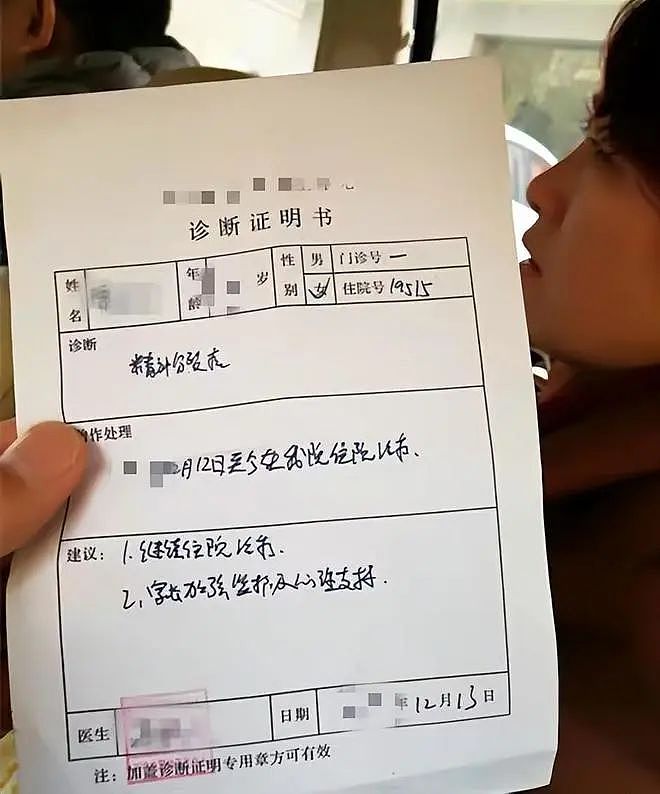 诊断证明书
姓名 年龄 岁 性别 男 女 门诊号 一
住院号 19515
诊断
精神分裂症
作处理
2月12日至今在我院住院治疗.
建议: 1. 继续住院治疗.
2. 家长加强监护及心理支持.
医生 日期 年12月13日
注: 加盖诊断证明专用章方可有效